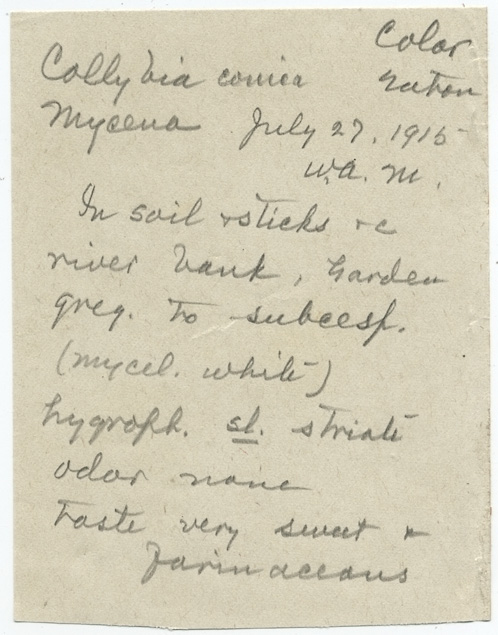 Color
Collybia conica
Mycena July 27, 1915
W.A.M.
In soil & sticks &c
river bank, Garden
greg. to subcesp.
(mycel. white)
hygroph. sl. striate
odor none
taste very sweet &
farinaceous